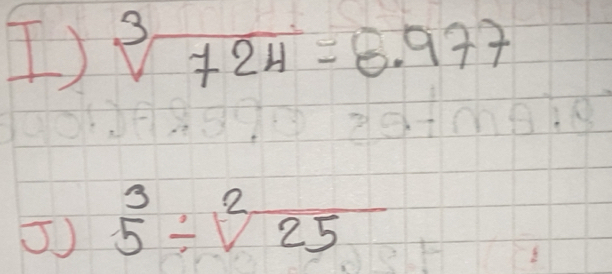 I) ∛724 = 8.977
J) 5³ ÷ ²√25